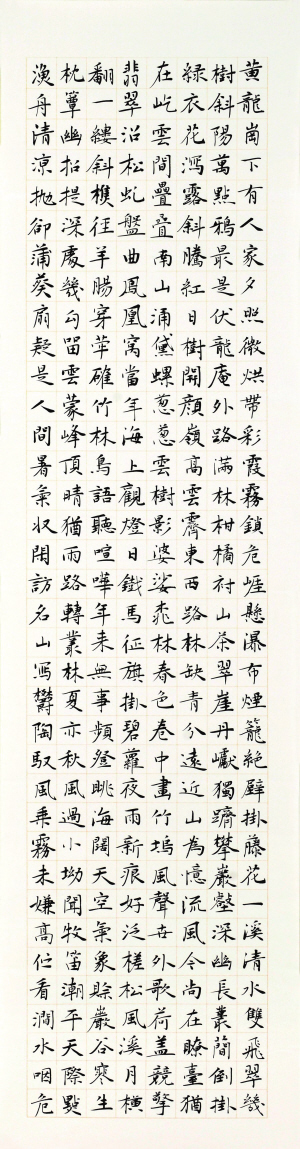 黃龍崗下有人家夕照微烘帶彩霞霧鎖危崖懸瀑布煙籠絕壁掛藤花一溪清水雙飛翠幾
樹斜陽萬點鴉最是伏龍庵外路滿林柑橘襯山茶翠崖丹巘獨躋攀巖壑深幽長叢蘭倒掛
綠衣花瀉露斜騰紅日樹開顏嶺高雲霽東西路林缺青分遠近山為憶流風今尚在瞭臺猶
在屹雲間疊疊南山涌黛螺蔥蔥雲樹影婆娑桃林春色卷中畫竹塢風聲世外歌荷蓋競擎
翡翠沼松虬盤曲鳳凰窩當年海上觀燈日鐵馬征旗掛碧蘿夜雨新痕好泛槎松風溪月橫
翻一縷斜樵徑羊腸穿犖確竹林鳥語聽喧嘩年來無事頻登眺海闊天空氣象賒巖谷寒生
枕簟幽招提深處幾勾留雲蒙峰頂晴猶雨路轉叢林夏亦秋風過小坳聞牧笛潮平天際點
漁舟清涼拋卻蒲葵扇疑是人間暑氣收閑訪名山寫鬱陶馭風乘霧未嫌高佇看澗水咽危